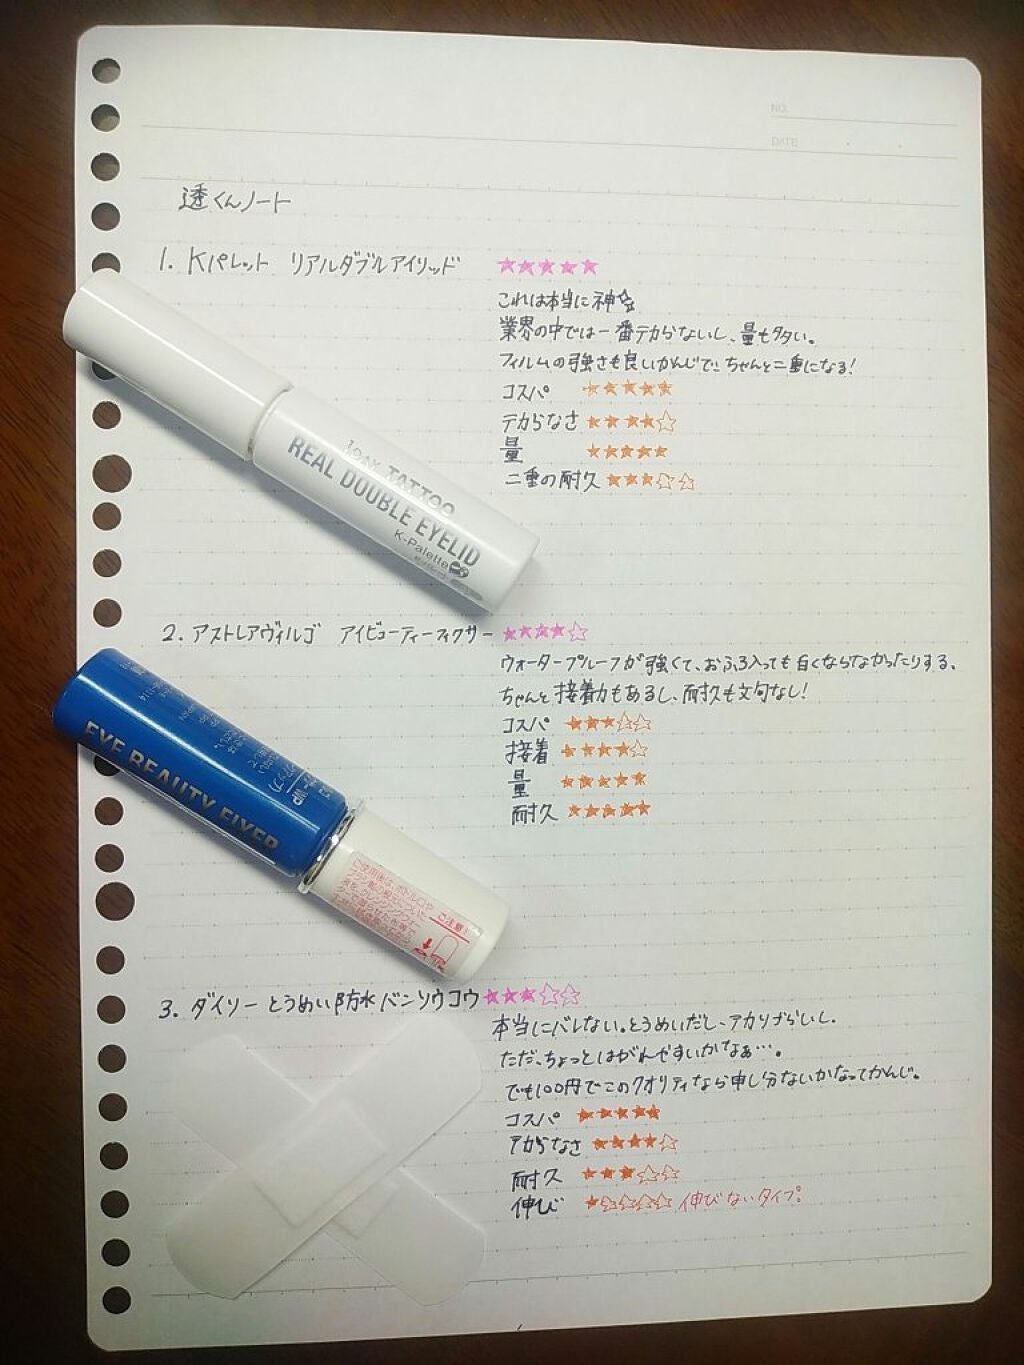 NO.
DATE
透くんノート
1. Kパレット リアルダブルアイリッド ★★★★★
これは本当に神☆
業界の中では一番テカらないし、量も多い。
フィルムの強さも良いかんじで、ちゃんと二重になる!
コスパ ★★★★★
テカらなさ ★★★★☆
量 ★★★★★
二重の耐久 ★★★☆☆
1DAY TATTOO
REAL DOUBLE EYELID
K-Palette
2. アストレアヴィルゴ アイビューティーフィクサー ★★★★☆
ウォータープルーフが強くて、おふろ入っても白くならなかったりする、
ちゃんと接着力もあるし、耐久も文句なし!
コスパ ★★★☆☆
接着 ★★★★☆
量 ★★★★★
耐久 ★★★★★
EYE BEAUTY FIXER
ご注意!
3. ダイソー とうめい防水バンソウコウ ★★★☆☆
本当にバレない。とうめいだし、テカリづらいし。
ただ、ちょっとはがれやすいかなぁ…。
でも100円でこのクオリティなら申し分ないかなってかんじ。
コスパ ★★★★★
テカらなさ ★★★★☆
耐久 ★★★☆☆
伸び ★☆☆☆☆ 伸びないタイプ。